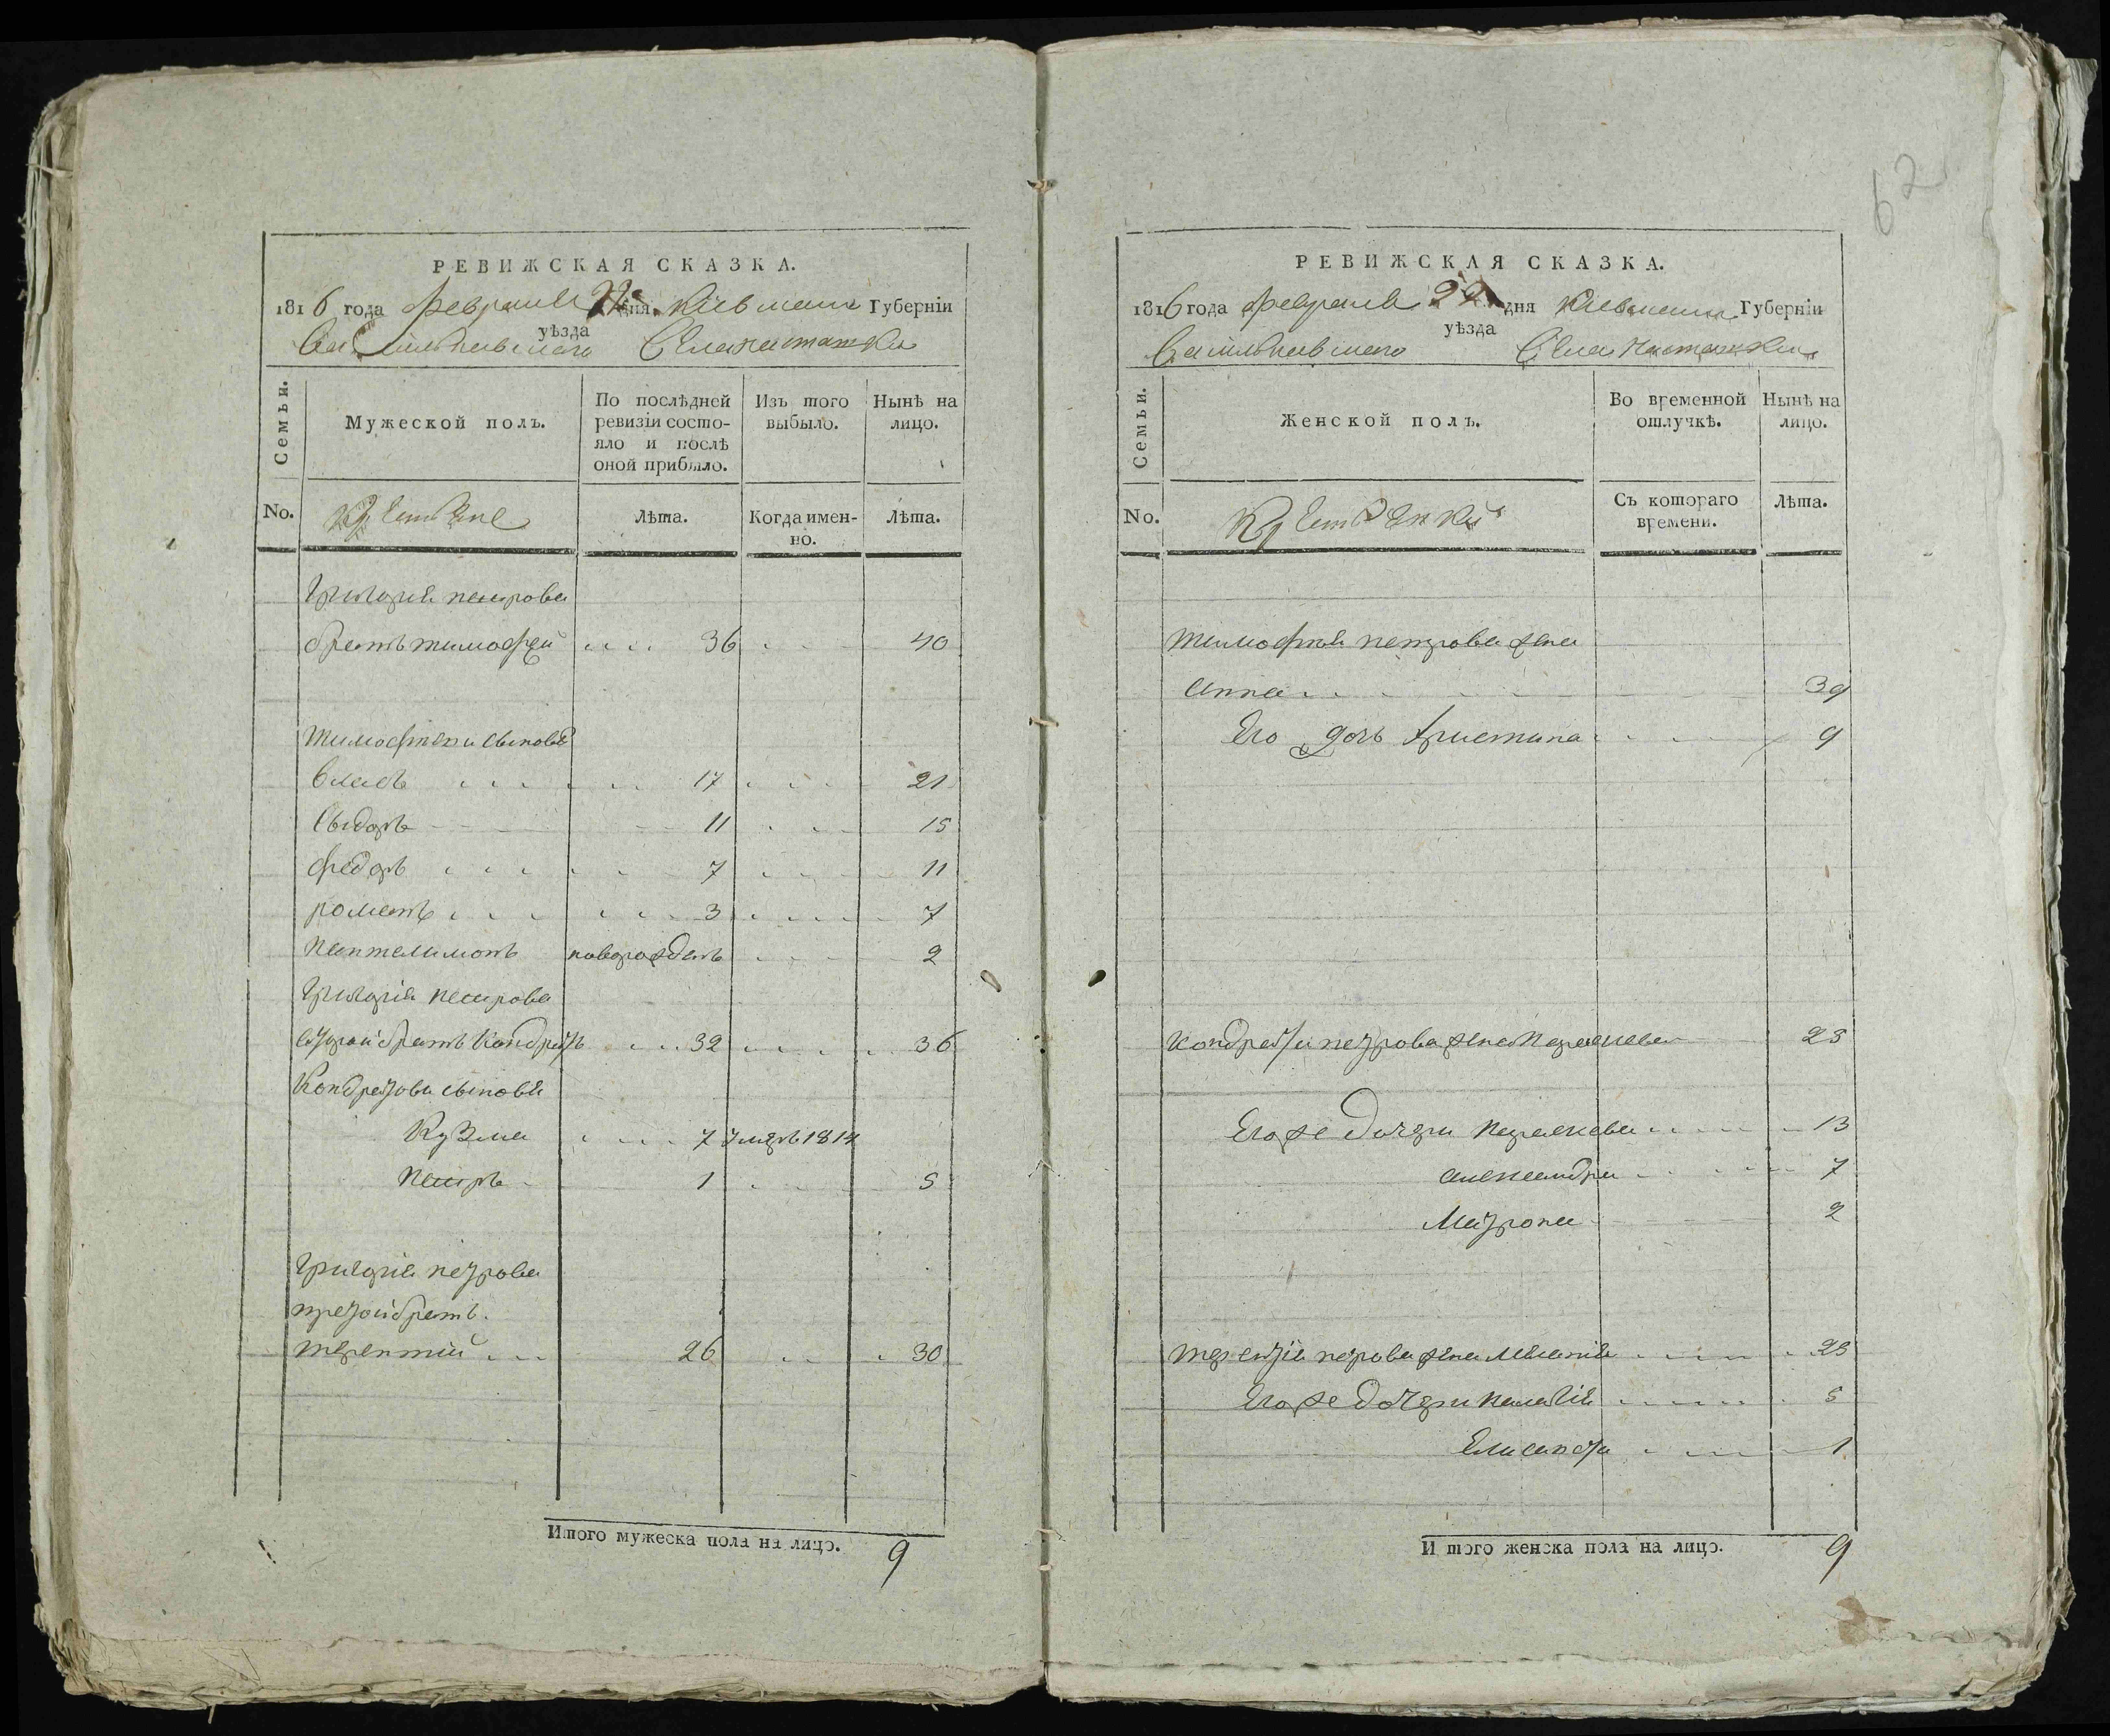 62
РЕВИЖСКАЯ СКАЗКА.
1816 года февраля 22 дня Кіевской Губерніи
Васильковскаго уѣзда Села Насташки
Семьи.
Мужеской полъ.
По послѣдней ревизіи состояло и послѣ оной прибыло.
Изъ того выбыло.
Нынѣ на лицо.
No.
Крестьяне
Лѣта.
Когда именно.
Лѣта.
Григорія петрова
братъ тимофей 36 40
тимофтея сыновья
власъ 17 21
Сыдоръ 11 15
федоръ 7 11
романъ 3 7
пантелимонъ новорожденъ 2
Григорія петрова
другой братъ Кондратъ 32 36
Кондратова сыновья
Кузма 7 умеръ 1814
петръ 1 5
Григорія петрова
третой братъ.
терентий 26 30
Итого мужеска пола на лицо. 9
РЕВИЖСКАЯ СКАЗКА.
1816 года февраля 22 дня Кіевской Губерніи
Васильковскаго уѣзда Села Насташки
Семьи.
Женской полъ.
Во временной отлучкѣ.
Нынѣ на лицо.
No.
Крестьянки
Съ котораго времени.
Лѣта.
тимофтея петрова жена
анна 39
Его дочь христина 9
Кондрата петрова жена Параскева 25
Его же дочери параскева 13
александра 7
Матрона 2
терентія петрова жена Меланія 25
Его же дочери палагія 5
Елисавета 1
Итого женска пола на лицо. 9